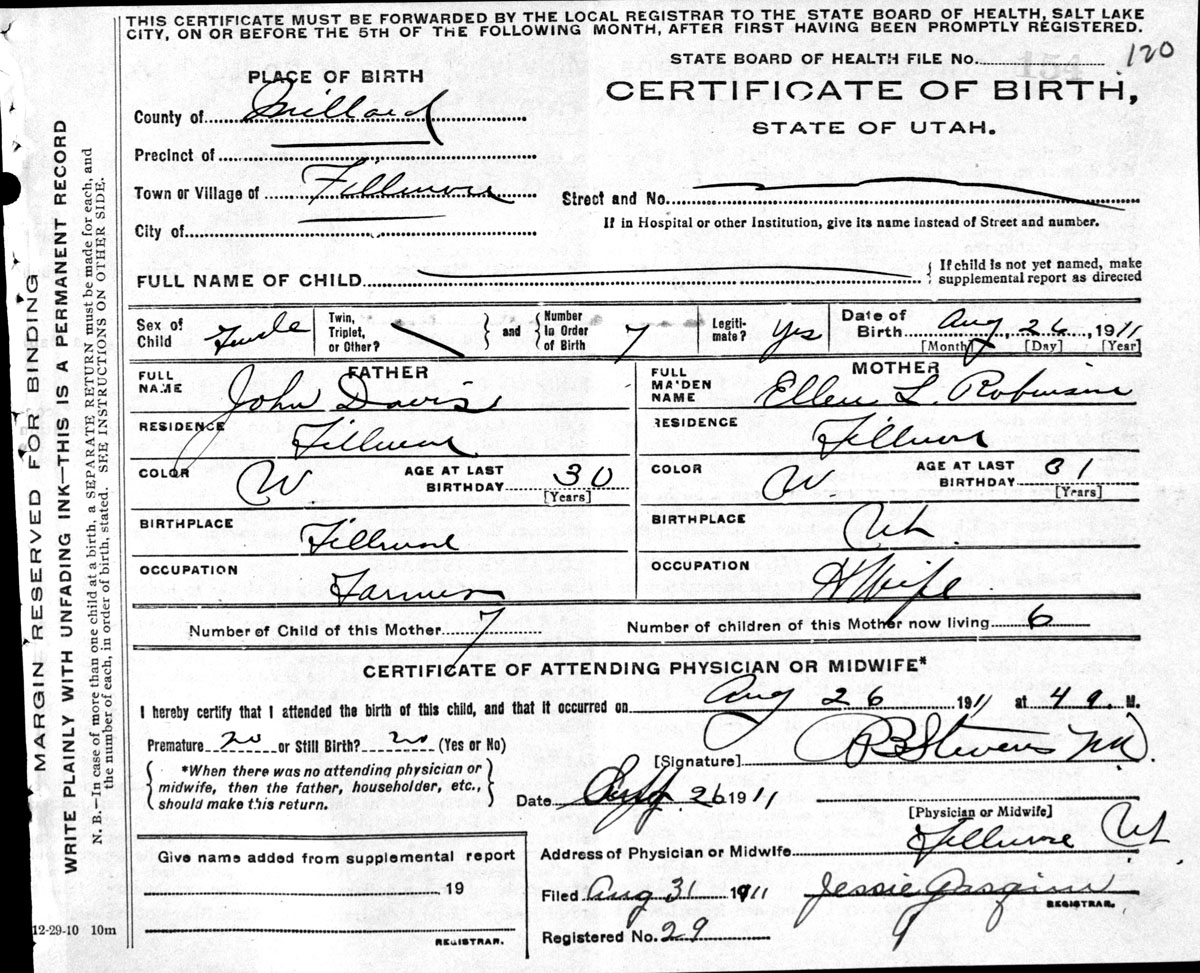 THIS CERTIFICATE MUST BE FORWARDED BY THE LOCAL REGISTRAR TO THE STATE BOARD OF HEALTH, SALT LAKE
CITY, ON OR BEFORE THE 5TH OF THE FOLLOWING MONTH, AFTER FIRST HAVING BEEN PROMPTLY REGISTERED.
STATE BOARD OF HEALTH FILE No. 120
PLACE OF BIRTH
CERTIFICATE OF BIRTH,
STATE OF UTAH.
County of Millard
Precinct of
Town or Village of Fillmore
Street and No.
If in Hospital or other Institution, give its name instead of Street and number.
City of
FULL NAME OF CHILD { If child is not yet named, make
supplemental report as directed
Sex of
Child
Twin,
Triplet,
or Other?
and
Number
in Order
of Birth 7
Legiti-
mate? Yes
Date of
Birth Aug 26, 1911
[Month] [Day] [Year]
FATHER
FULL
NAME John Davis
RESIDENCE Fillmore
COLOR W
AGE AT LAST
BIRTHDAY 30
[Years]
BIRTHPLACE Fillmore
OCCUPATION Farmer
MOTHER
FULL
MAIDEN
NAME Ellen L. Robinson
RESIDENCE Fillmore
COLOR W.
AGE AT LAST
BIRTHDAY 31
[Years]
BIRTHPLACE Ut.
OCCUPATION H Wife
Number of Child of this Mother 7
Number of children of this Mother now living 6
CERTIFICATE OF ATTENDING PHYSICIAN OR MIDWIFE*
I hereby certify that I attended the birth of this child, and that it occurred on Aug 26 1911 at 4 M.
Premature no or Still Birth? no (Yes or No)
*When there was no attending physician or
midwife, then the father, householder, etc.,
should make this return.
[Signature] Stevens
Date 26 1911
[Physician or Midwife]
Address of Physician or Midwife Fillmore Ut
Give name added from supplemental report
19
REGISTRAR.
Filed Aug 31 1911 Jessie
REGISTRAR.
Registered No. 29
12-29-10 10m
MARGIN RESERVED FOR BINDING
WRITE PLAINLY WITH UNFADING INK—THIS IS A PERMANENT RECORD
N. B.—In case of more than one child at a birth, a SEPARATE RETURN must be made for each, and
the number of each, in order of birth, stated. SEE INSTRUCTIONS ON OTHER SIDE.